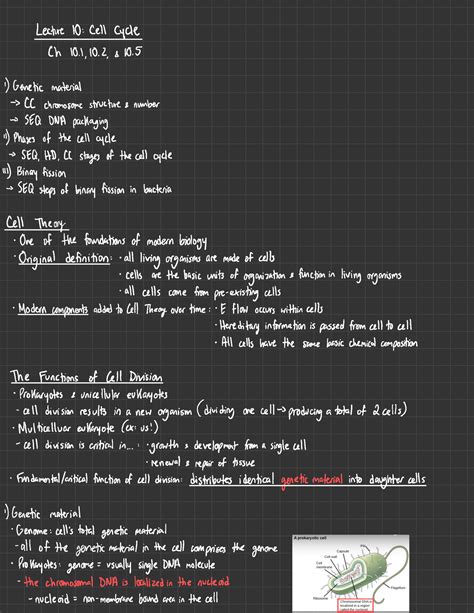 Lecture 10: Cell Cycle
Ch 10.1, 10.2, & 10.5
I) Genetic material
→ CC chromosome structure & number
→ SEQ DNA packaging
II) Phases of the cell cycle
→ SEQ, HD, CC stages of the cell cycle
III) Binary fission
→ SEQ steps of binary fission in bacteria
Cell Theory
• One of the foundations of modern biology
• Original definition: • all living organisms are made of cells
• cells are the basic units of organization & function in living organisms
• all cells come from pre-existing cells
• Modern components added to Cell Theory over time: • E flow occurs within cells
• Hereditary information is passed from cell to cell
• All cells have the same basic chemical composition
The Functions of Cell Division
• Prokaryotes & unicellular eukaryotes
- cell division results in a new organism (dividing one cell → producing a total of 2 cells)
• Multicellular eukaryote (ex: us!)
- cell division is critical in...: • growth & development from a single cell
• renewal & repair of tissue
• Fundamental/critical function of cell division: distributes identical genetic material into daughter cells
I) Genetic material
• Genome: cell's total genetic material
- all of the genetic material in the cell comprises the genome
• Prokaryotes: genome = usually single DNA molecule
- the chromosomal DNA is localized in the nucleoid
- nucleoid = non-membrane bound area in the cell
A prokaryotic cell
Capsule
Cell wall
Cell membrane
Ribosomes
Flagellum
Chromosomal DNA is localized in a region called the nucleoid